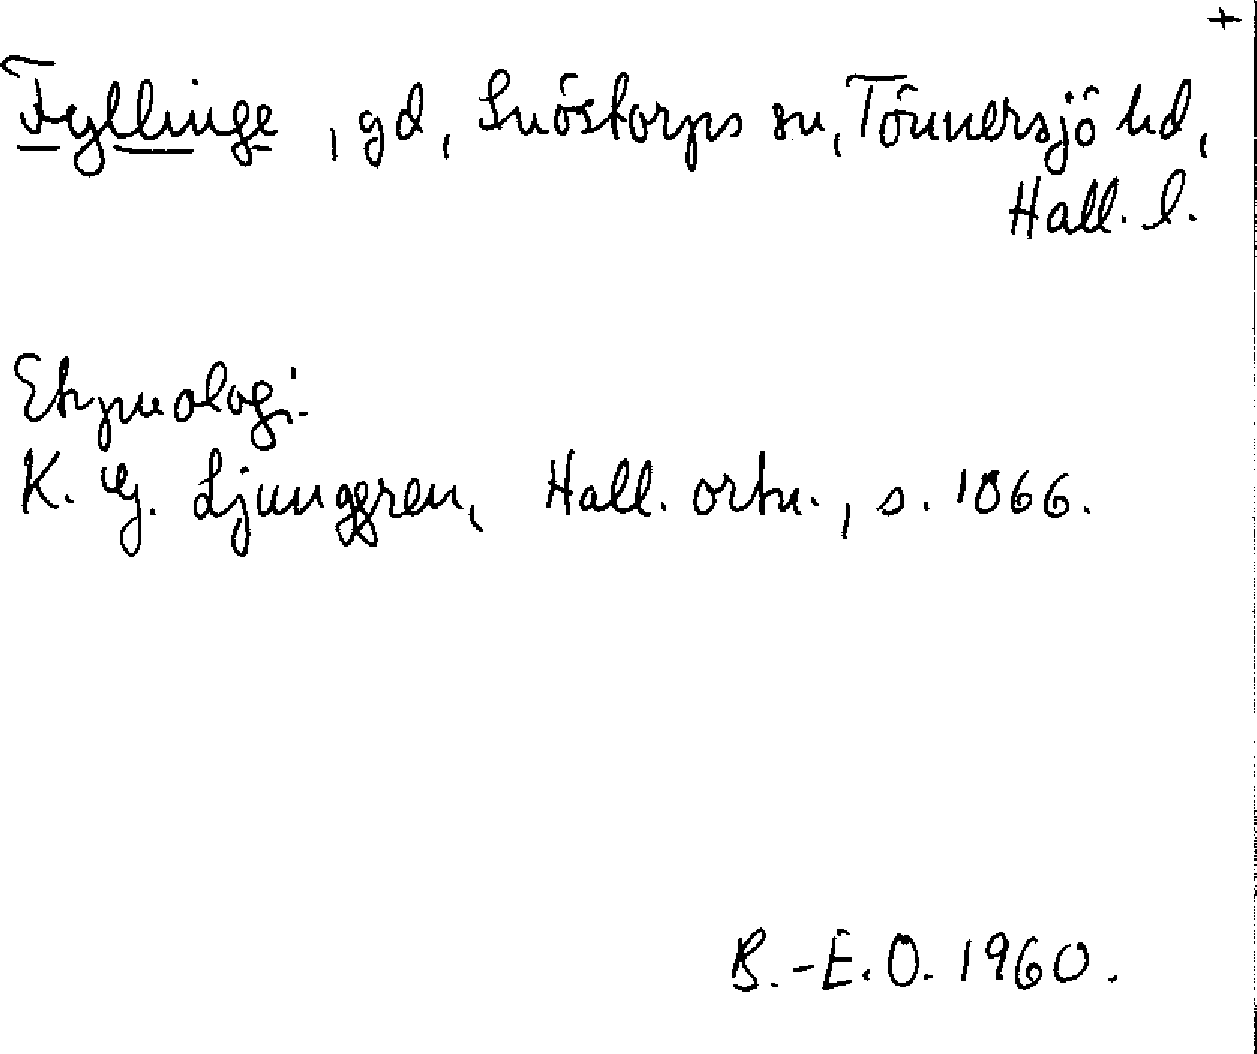 +
Fyllinge, gd, Snöstorps sn, Tönnersjö hd,
Hall. l.
Etymologi.
K. G. Ljunggren, Hall. ortn., s. 1066.
B.-E.O. 1960.